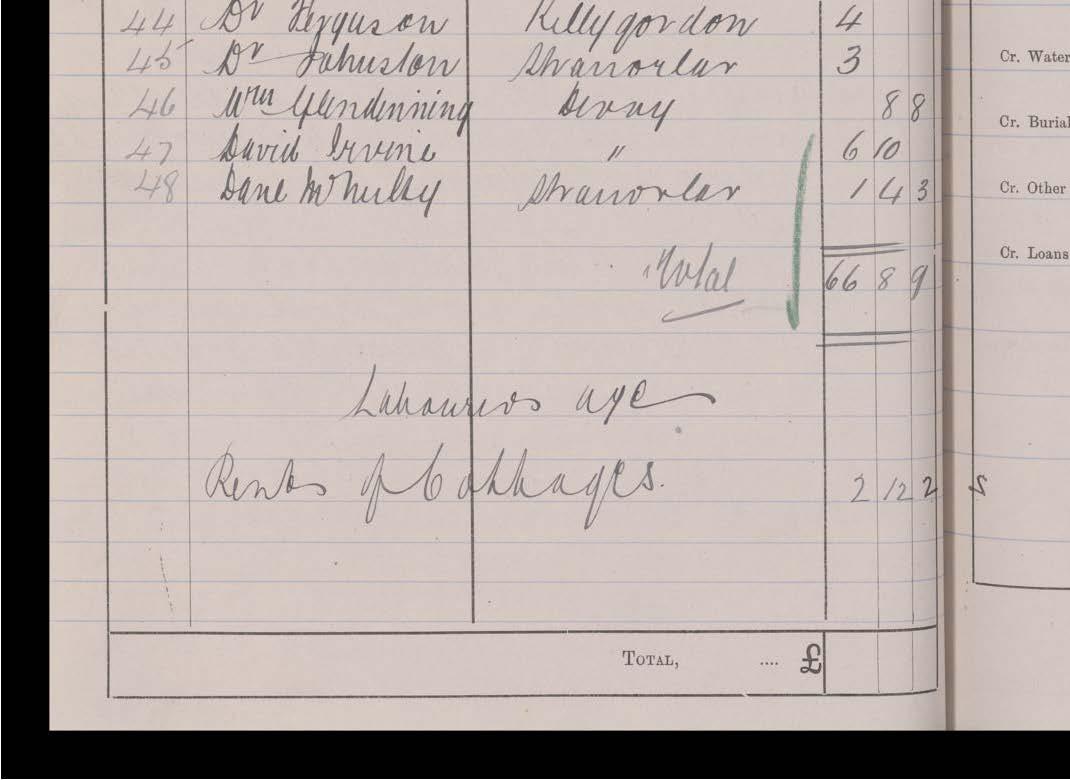 44 Dr Ferguson Killygordon 4
45 Dr Johnston Stranorlar 3
46 Wm Glendinning Derry 8 8
47 David Irvine " 6 10
48 Dane McNulty Stranorlar 1 4 3
Total 66 8 9
Labourers
Rents of Cottages. 2 12 2
TOTAL, .... £
Cr. Water
Cr. Burial
Cr. Other
Cr. Loans